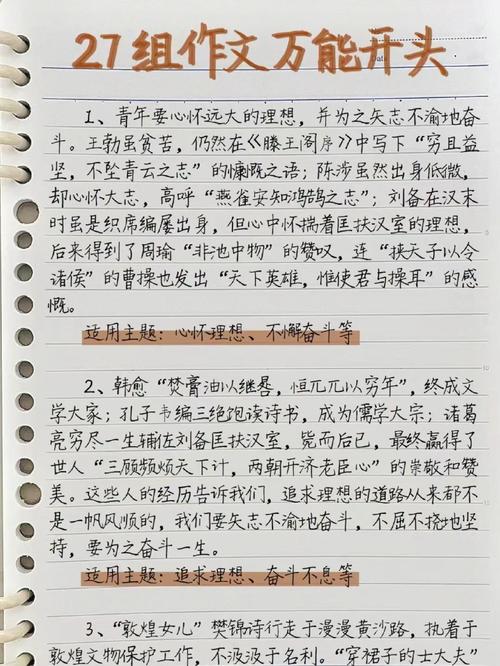 27组作文万能开头
1、青年要心怀远大的理想，并为之矢志不渝地奋
斗。王勃虽贫苦，仍然在《滕王阁序》中写下“穷且益
坚，不坠青云之志”的慷慨之语；陈涉虽然出身低微，
却心怀大志，高呼“燕雀安知鸿鹄之志”；刘备在汉末
时虽是织席编屦出身，但心中怀揣着匡扶汉室的理想，
后来得到了周瑜“非池中物”的赞叹，连“挟天子以令
诸侯”的曹操也发出“天下英雄，惟使君与操耳”的感
慨。
适用主题：心怀理想、不懈奋斗等
2、韩愈“焚膏油以继晷，恒兀兀以穷年”，终成文
学大家；孔子韦编三绝饱读诗书，成为儒学大宗；诸葛
亮穷尽一生辅佐刘备匡扶汉室，毙而后已，最终赢得了
世人“三顾频烦天下计，两朝开济老臣心”的崇敬和赞
美。这些人的经历告诉我们，追求理想的道路从来都不
是一帆风顺的，我们要矢志不渝地奋斗，不屈不挠地坚
持，要为之奋斗一生。
适用主题：追求理想、奋斗不息等
3、“敦煌女儿”樊锦诗行走于漫漫黄沙路，执着于
敦煌文物保护工作，不汲汲于名利。“穿裙子的士大夫”